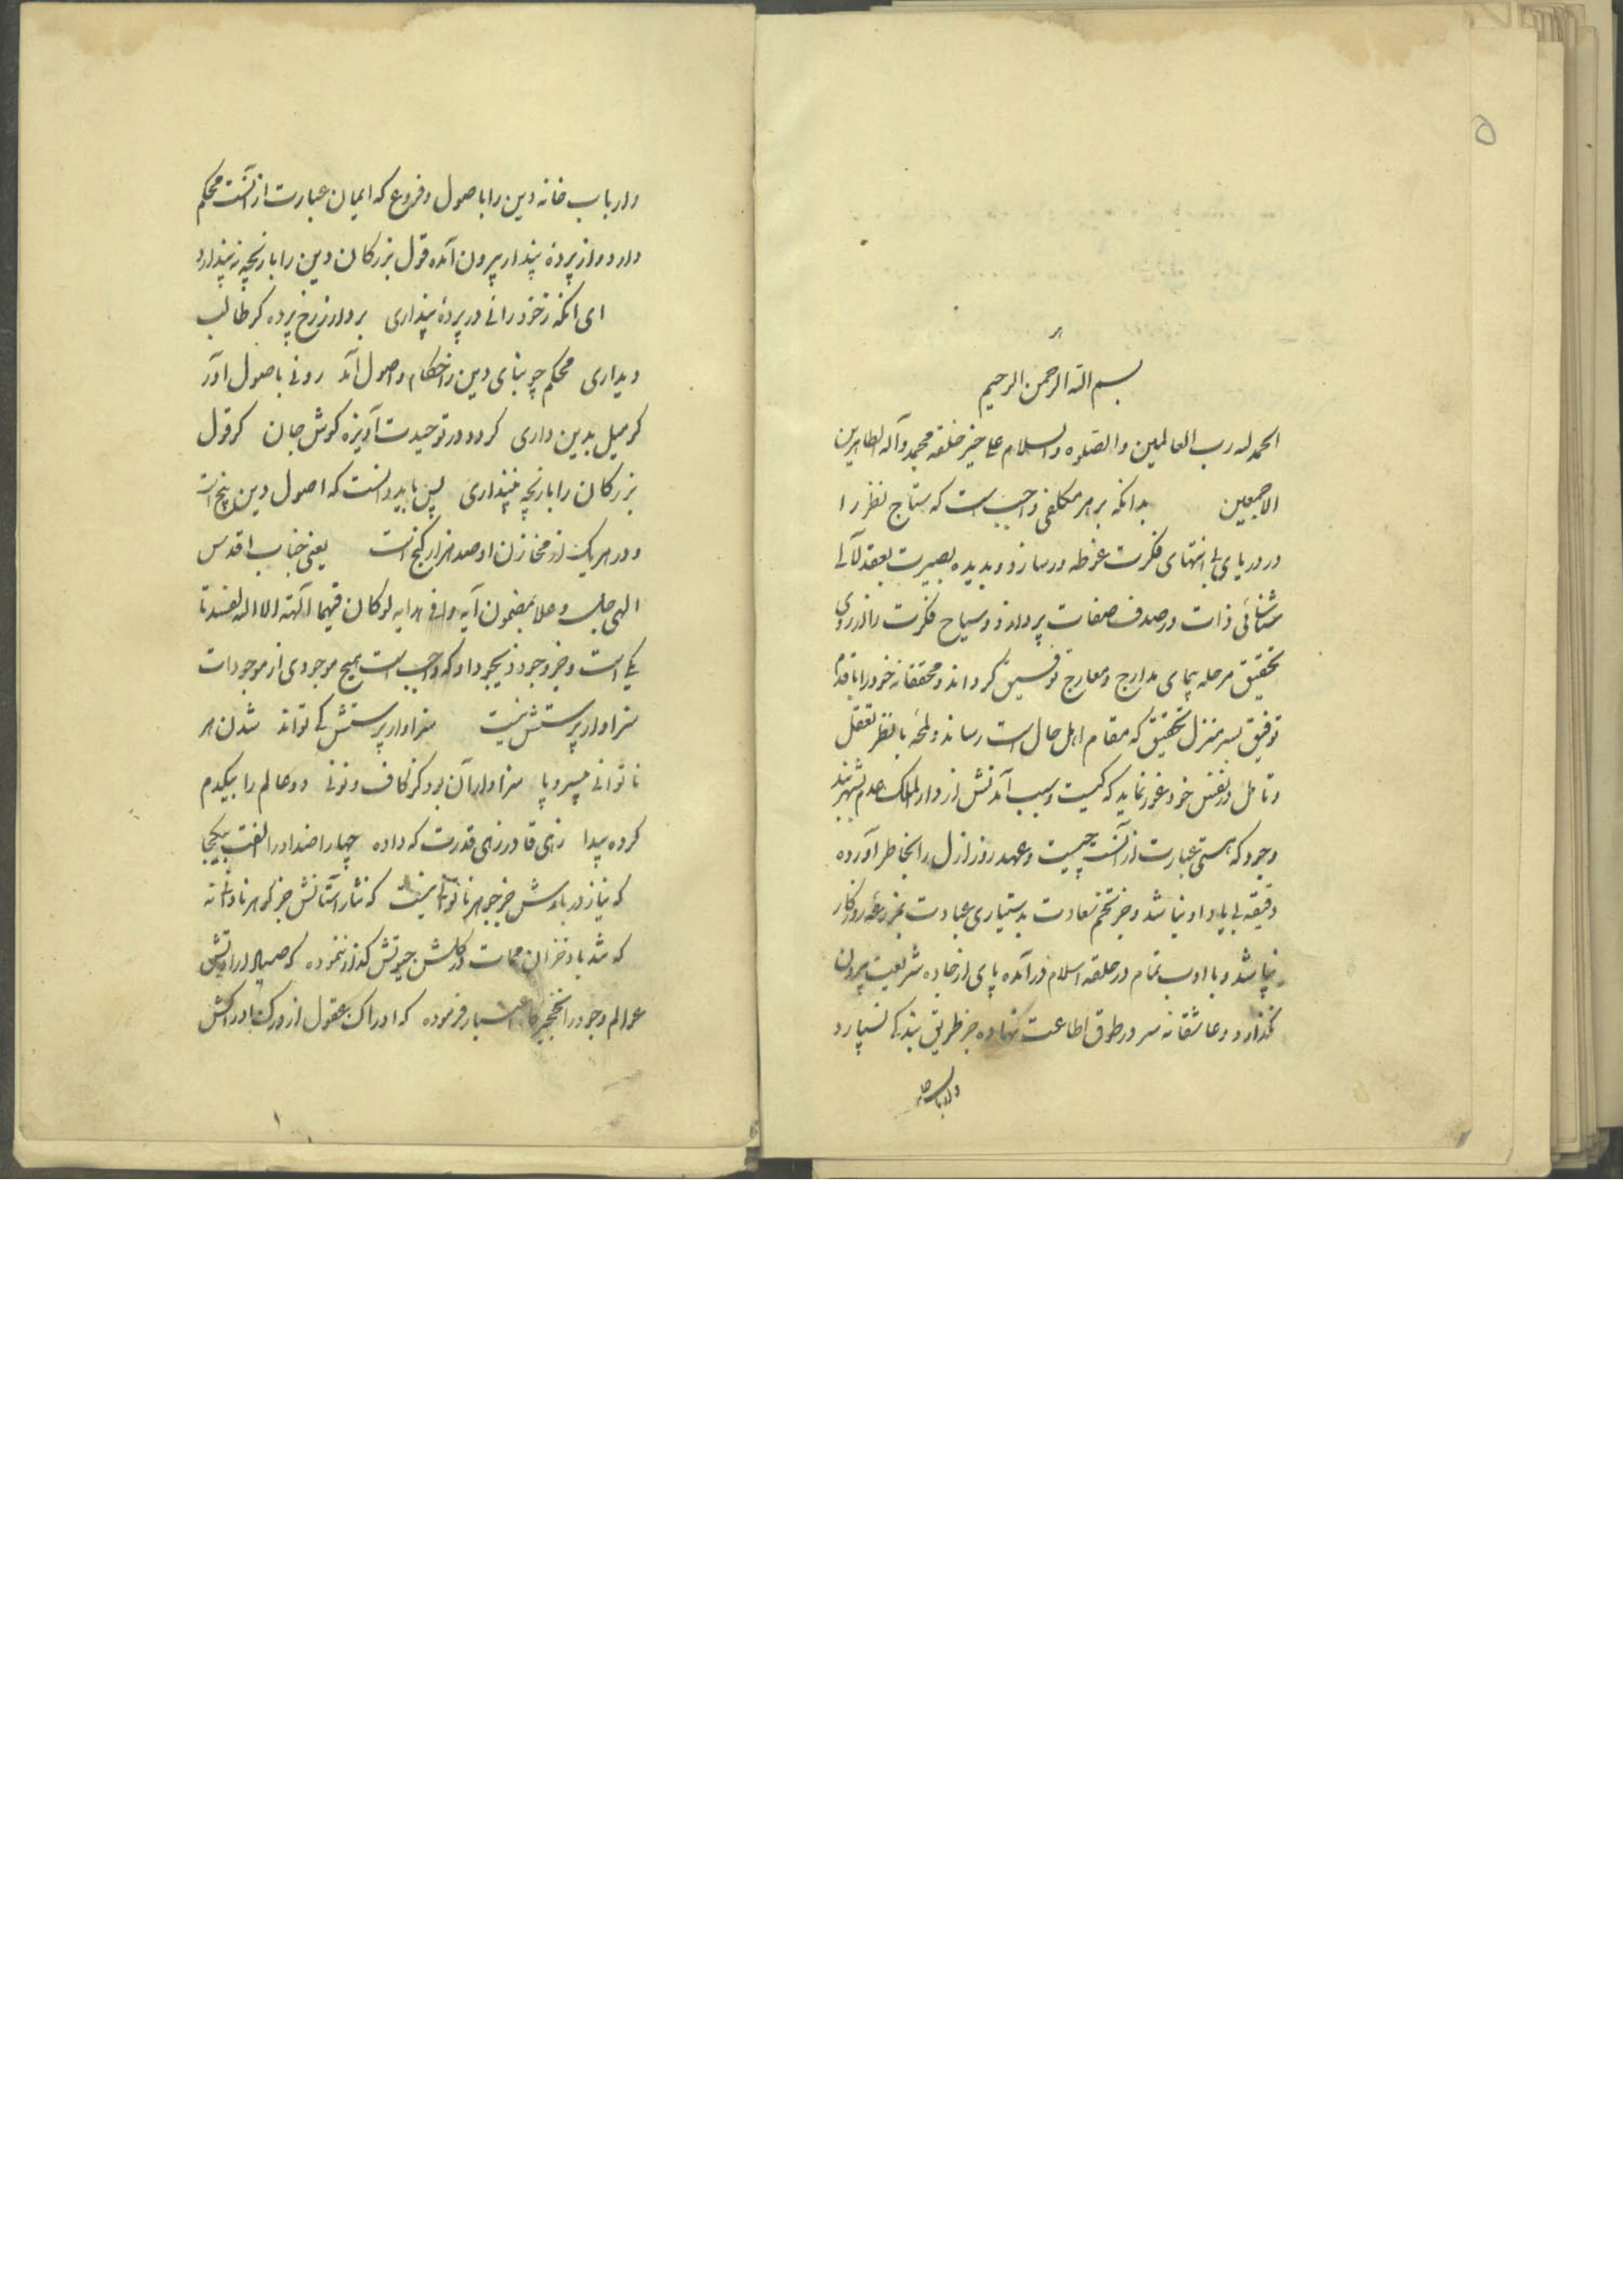 ۵
بسم الله الرحمن الرحیم
الحمد لله رب العالمین والصلوه والسلام علی خیر خلقه محمد وآله الطاهرین
الاجمعین بدانکه بر هر مکلفی واجب است که سباح نظر را
در دریای بی انتهای فکرت غوطه ور سازد و بدیده بصیرت بعقد لآلی
شناسائی ذات در صدف صفات پردازد و سیاح فکرت را از روی
تحقیق مرحله پیمای مدارج ومعارج توفیق گرداند و محققانه خود را باقدام
توفیق بسرمنزل تحقیق که مقام اهل حال است رساند و لمحه بانظر تعقل
و تامل در نفس خود غور نماید که کیست و سبب آمدنش از دار الملک عدم بشهربند
وجود که هستی عبارت از آنست چیست و عهد روز ازل را بخاطر آورده
دقیقه بی یاد او نباشد و جز تخم سعادت بدستیاری عبادت بمزرعه روزکار
نپاشد و با ادب تمام در حلقه اسلام در آمده پای از جاده شریعت بیرون
نگذارد و عاشقانه سر در طوق اطاعت نهاده جز طریق بندکی نسپارد
و ارباب خانه دین را باصول و فروع که ایمان عبارت از آنست محکم
دارد و از پرده پندار بیرون آمده قول بزرکان دین را بازیچه نپندارد
ای آنکه ز خود رائی در پرده پنداری بردار ز رخ پرده کر طالب
دیداری محکم چو بنای دین ز احکام و اصول آمد رو نی باصول آور
کر میل بدین داری کردد در توحیدت آویزه کوش جان کر قول
بزرکان را بازیچه نپنداری پس باید دانست که اصول دین پنج است
و در هریک از مخازن او صد هزار کنج است یعنی جناب اقدس
الهی جل وعلا بمضمون آیه وافی هدایه لو کان فیهما آلهة الا الله لفسدتا
یکی است و جز وجود ذیجود او که واجب است هیچ موجودی از موجودات
سزاوار پرستش نیست سزاوار پرستش کی تواند شدن هر
ناتوانی بیسر و پا سزاوار آن بود کز کاف و نونی دو عالم را بیکدم
کرده پیدا زهی قادر زهی قدرت که داده چهار اضداد را الفت بیکجا
که نیاز دربارش جز جوهر ناتوانی نیست که نثار آستانش جز کوهر نادانی نه
که شد باد خزان ممات در کلشن حیوتش کذار ننموده که صیاد ارادتش
عوالم وجود را نخجیرگاه اعتبار فرموده که ادراک عقول از درک ادراکش
۱